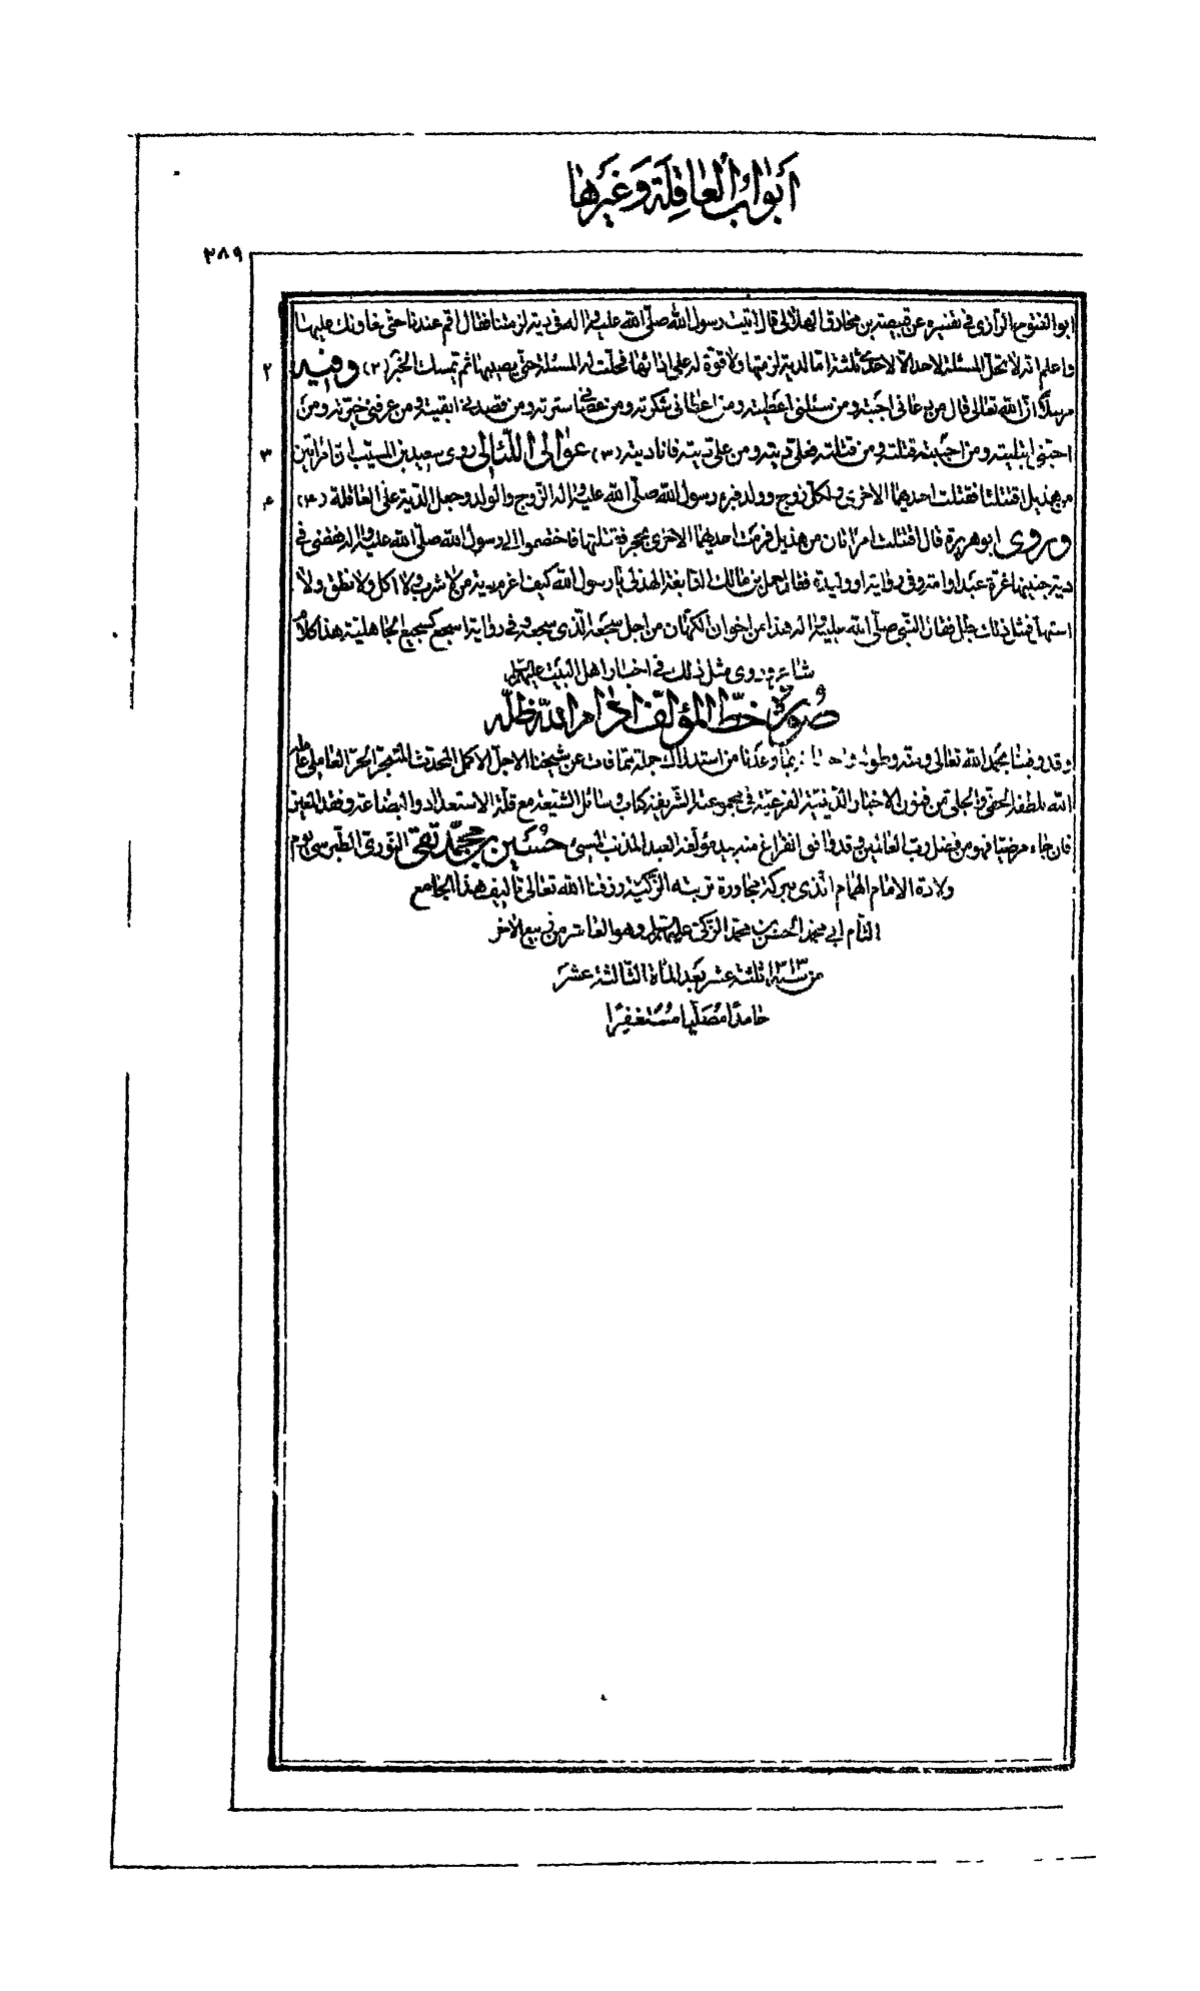 أبواب العاقلة وغيرها
٢٨٩
ابو الفتوح الرازي في تفسيره عن قبيصة بن مخارق الهلالي قال اتيت رسول الله صلى الله عليه واله في دية لزمتنا فقال اقم عندنا حتى نعاونك عليها
واعلم انه لا تحل المسئلة لاحد الا لاحدى ثلثة اما لدية لزمتها ولا قوة له على اذائها فحلت له المسئلة حتى يصيبها ثم تمسك الخبر (٢) وفيه
٢
مرسلا ان الله تعالى قال من دعاني اجبته ومن سئلني اعطيته ومن اعطاني شكرته ومن عصاني سترته ومن قصدني ابقيته ومن عرفني خيرته ومن
احبني ابتليته ومن احببته قتلته ومن قتلته فعلي ديته ومن علي ديته فانا ديته (٣) عوالي اللئالي روى سعيد بن المسيب ان امرأتين
٣
من هذيل اقتتلتا فقتلت احديهما الاخرى ولكل زوج وولد فبرء رسول الله صلى الله عليه واله الزوج والولد وجعل الدية على العاقلة (٤)
٤
وروى ابو هريرة قال اقتتلت امرأتان من هذيل فرمت احديهما الاخرى بحجر فقتلتها فاختصموا الى رسول الله صلى الله عليه واله فقضى في
دية جنينها غرة عبد او امة وفي رواية او وليدة فقال حمل بن مالك النابغة الهذلي يا رسول الله كيف اغرم دية من لا شرب ولا اكل ولا نطق ولا
استهل فمثل ذلك بطل فقال النبي صلى الله عليه واله هذا من اخوان الكهان من اجل سجعه الذي سجعه وفي رواية اسجع كسجع الجاهلية هذا كلام
شاعر وروى مثل ذلك في اخبار اهل البيت عليهم
صورة خط المؤلف ادام الله ظله
وقد وفينا بحمد الله تعالى ومنه وطوله بما وعدنا من استدراك جملة مما فات عن شيخنا الاجل الاكمل المحدث المتبحر الحر العاملي عامله
الله بلطفه الخفي والجلي من فنون الاخبار الدينية الفرعية في مجموعته الشريفة كتاب وسائل الشيعة مع قلة الاستعداد والبضاعة وفقد المعين
فان جاء مرضيا فهو من فضل رب العالمين وقد وافق الفراغ منه بيد مؤلفه العبد المذنب المسيئ حسين بن محمد تقي النوري الطبرسي يوم
ولادة الامام الهمام الذي ببركة مجاورة تربته الزكية رزقنا الله تعالى تأليف هذا الجامع
التام ابي محمد الحسن بن محمد الزكي عليهما وهو العاشر من ربيع الاخر
من سنة ١٣١٣ ثلثة عشر بعد المأة الثالثة عشر
حامدا مصليا مستغفرا